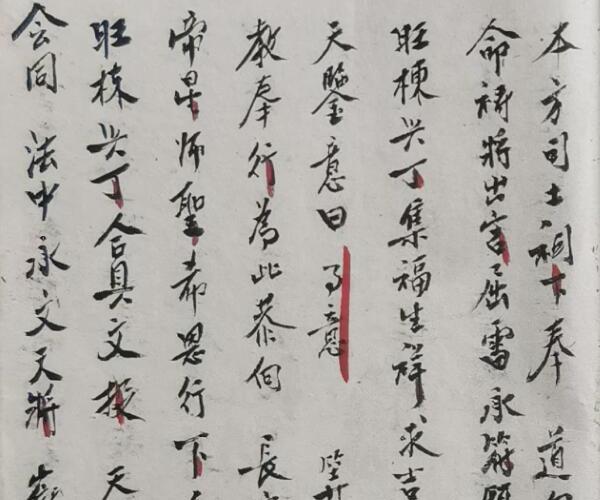 本方司土祠下奉 道
命祷將出害屈雷永
旺棟兴丁集福生祥求吉
天鑒意曰 了意
教奉行為此恭伺 長
帝昇師聖希恩行下
旺棟兴丁合具文投 天
会同 法中承文天將